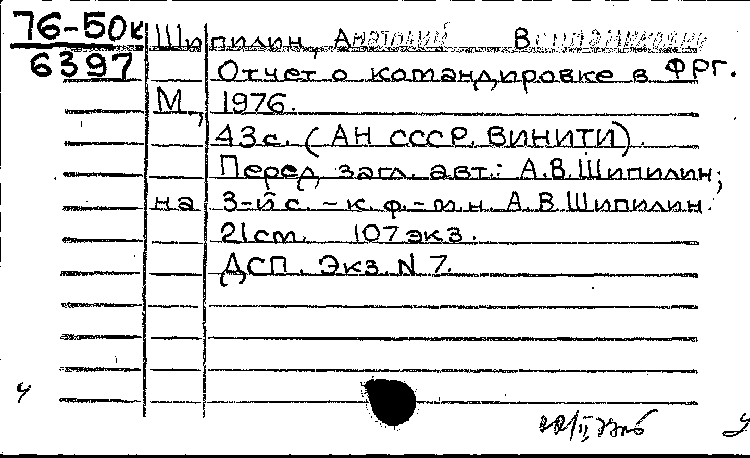 76-50к
6397
Шипилин, Анатолий
Отчет о командировке в ФРГ.
М., 1976.
43с. (АН СССР. ВИНИТИ).
Перед загл. авт.: А.В.Шипилин;
на 3-й с. - к.ф.-м.н. А.В.Шипилин.
21см. 107экз.
ДСП. Экз. N 7.